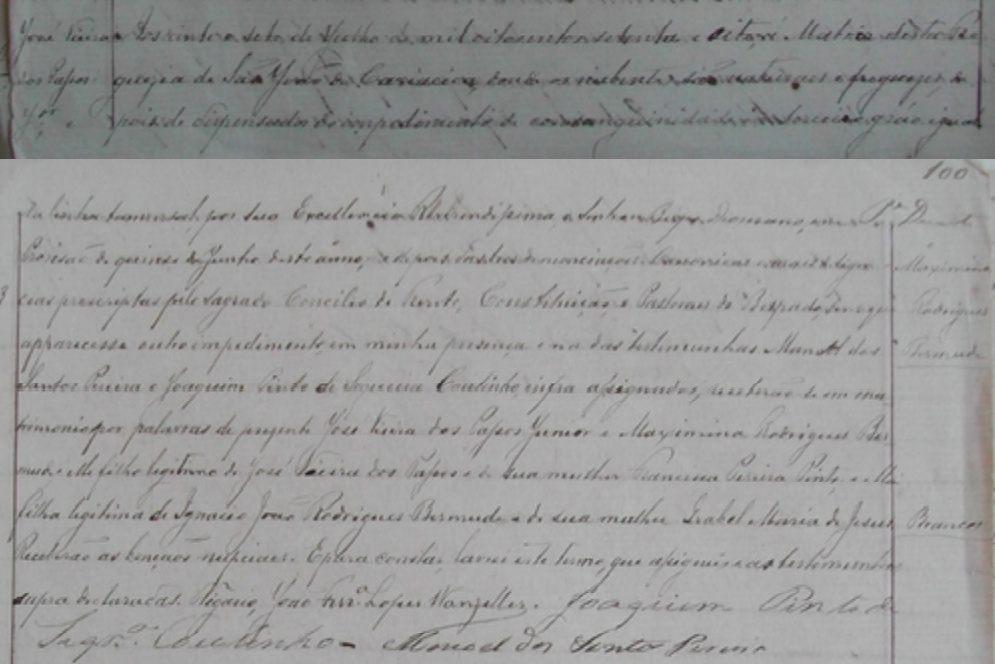 José Vieira
dos Passos
Jor e
Aos vinte e sete de Julho de mil oitocentos setenta e oito, n'e Matriz desta Fre
guezia de São João de Cariacica donde os nubentes são naturaes e freguezes, de
pois de dispensados do impedimento de consanguinidade em terceiro gráo igual
100
da linha transversal, por Sua Excellencia Reverendissima, o Senhor Bispo Diocesano, em
Provisão de quinze de Junho deste anno, e depois das tres denunciações Canonicas e mais deligen
cias prescriptas pelo Sagrado Concilio de Trento, Constituição e Pastoraes do Bispado, sem que
apparecesse outro impedimento, em minha presença e na das testemunhas Manoel dos
Santos Pereira e Joaquim Pinto de Siqueira Coutinho, infra assignados, receberão-se em ma
trimonio por palavras de presente José Vieira dos Passos Junior e Maximina Rodrigues Ber
mude. Elle filho legitimo de José Vieira dos Passos e de sua mulher Francisca Pereira Pinto, e Ella
filha legitima de Ignacio João Rodrigues Bermude e de sua mulher Izabel Maria de Jesus.
Receberão as bençãos nupciaes. E para constar, lavrei este termo, que assignei e as testemunhas
supra declaradas. Vigario, João Ferrª Lopes Wanzeller. Joaquim Pinto de
Siqrª. Coutinho - Manoel dos Santos Pereira
Maximina
Rodrigues
Bermude
Brancos